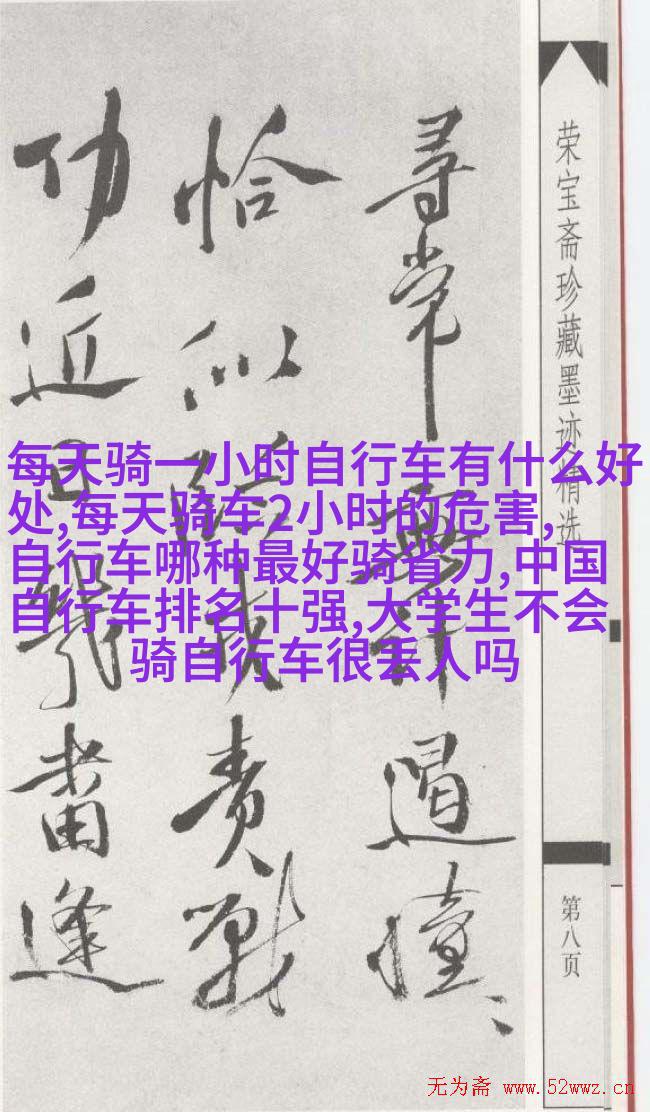 每天骑一小时自行车有什么好
处,每天骑车2小时的危害,
自行车哪种最好骑省力,中国
自行车排名十强,大学生不会
骑自行车很丢人吗
荣宝斋珍藏墨迹精选
第八页
尋常無計遏憧、、
恰似責戰
功近日幾番逢
无为斋 www.52wwz.cn